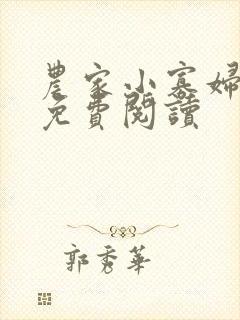 農家小寡婦
免費閱讀
郭秀華